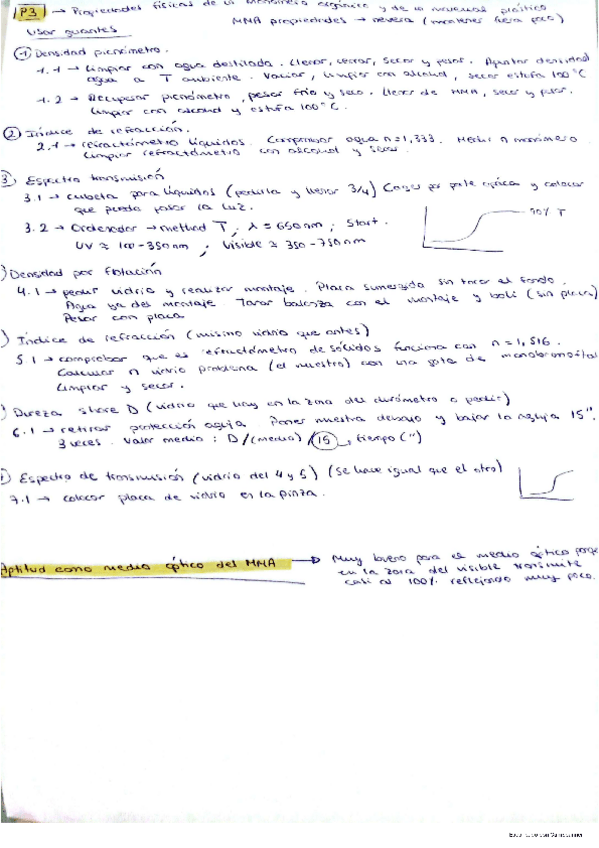 P3 → Propiedades físicas de un monómero orgánico y de un material plástico
MMA propiedades → nevera (mantener fuera poco)
Usar guantes
① Densidad picnómetro.
1.1 → Limpiar con agua destilada. Llenar, cerrar, secar y pesar. Apuntar densidad
agua a T ambiente. Vaciar, limpiar con alcohol, secar estufa 100°C
1.2 → Recuperar picnómetro, pesar frío y seco. Llenar de MMA, secar y pesar.
Limpiar con alcohol y estufa 100°C.
② Índice de refracción.
2.1 → refractómetro líquidos. Comprobar agua n=1,333. Medir n monómero.
Limpiar refractómetro con alcohol y secar.
3) Espectro transmisión
3.1 → cubeta para líquidos (pedirla y llenar 3/4) Coger por parte óptica y colocar
que pueda pasar la luz.
3.2 → Ordenador → method T, λ = 650 nm, Start.
UV ≈ 100-350 nm, Visible ≈ 350-750 nm
90% T
) Densidad por flotación
4.1 → pedir vidrio y realizar montaje. Placa sumergida sin tocar el fondo.
Agua ya des montaje. Tarar balanza con el montaje y boli (sin placa)
Pesar con placa
) Índice de refracción (mismo vidrio que antes)
5.1 → comprobar que el refractómetro de sólidos funciona con n=1,516.
Calcular n vidrio problema (el nuestro) con una gota de
Limpiar y secar.
) Dureza shore D (vidrio que hay en la zona del durómetro o pedir)
6.1 → retirar protección aguja. Poner nuestra debajo y bajar la aguja 15".
3 veces. Valor medio: D/(medio)/15 → tiempo (")
) Espectro de transmisión (vidrio del 4 y 5) (se hace igual que el otro)
7.1 → colocar placa de vidrio en la pinza.
Aptitud como medio óptico del MMA → Muy bueno para el medio óptico porque
en la zona del visible transmite
casi al 100% reflejando muy poco.